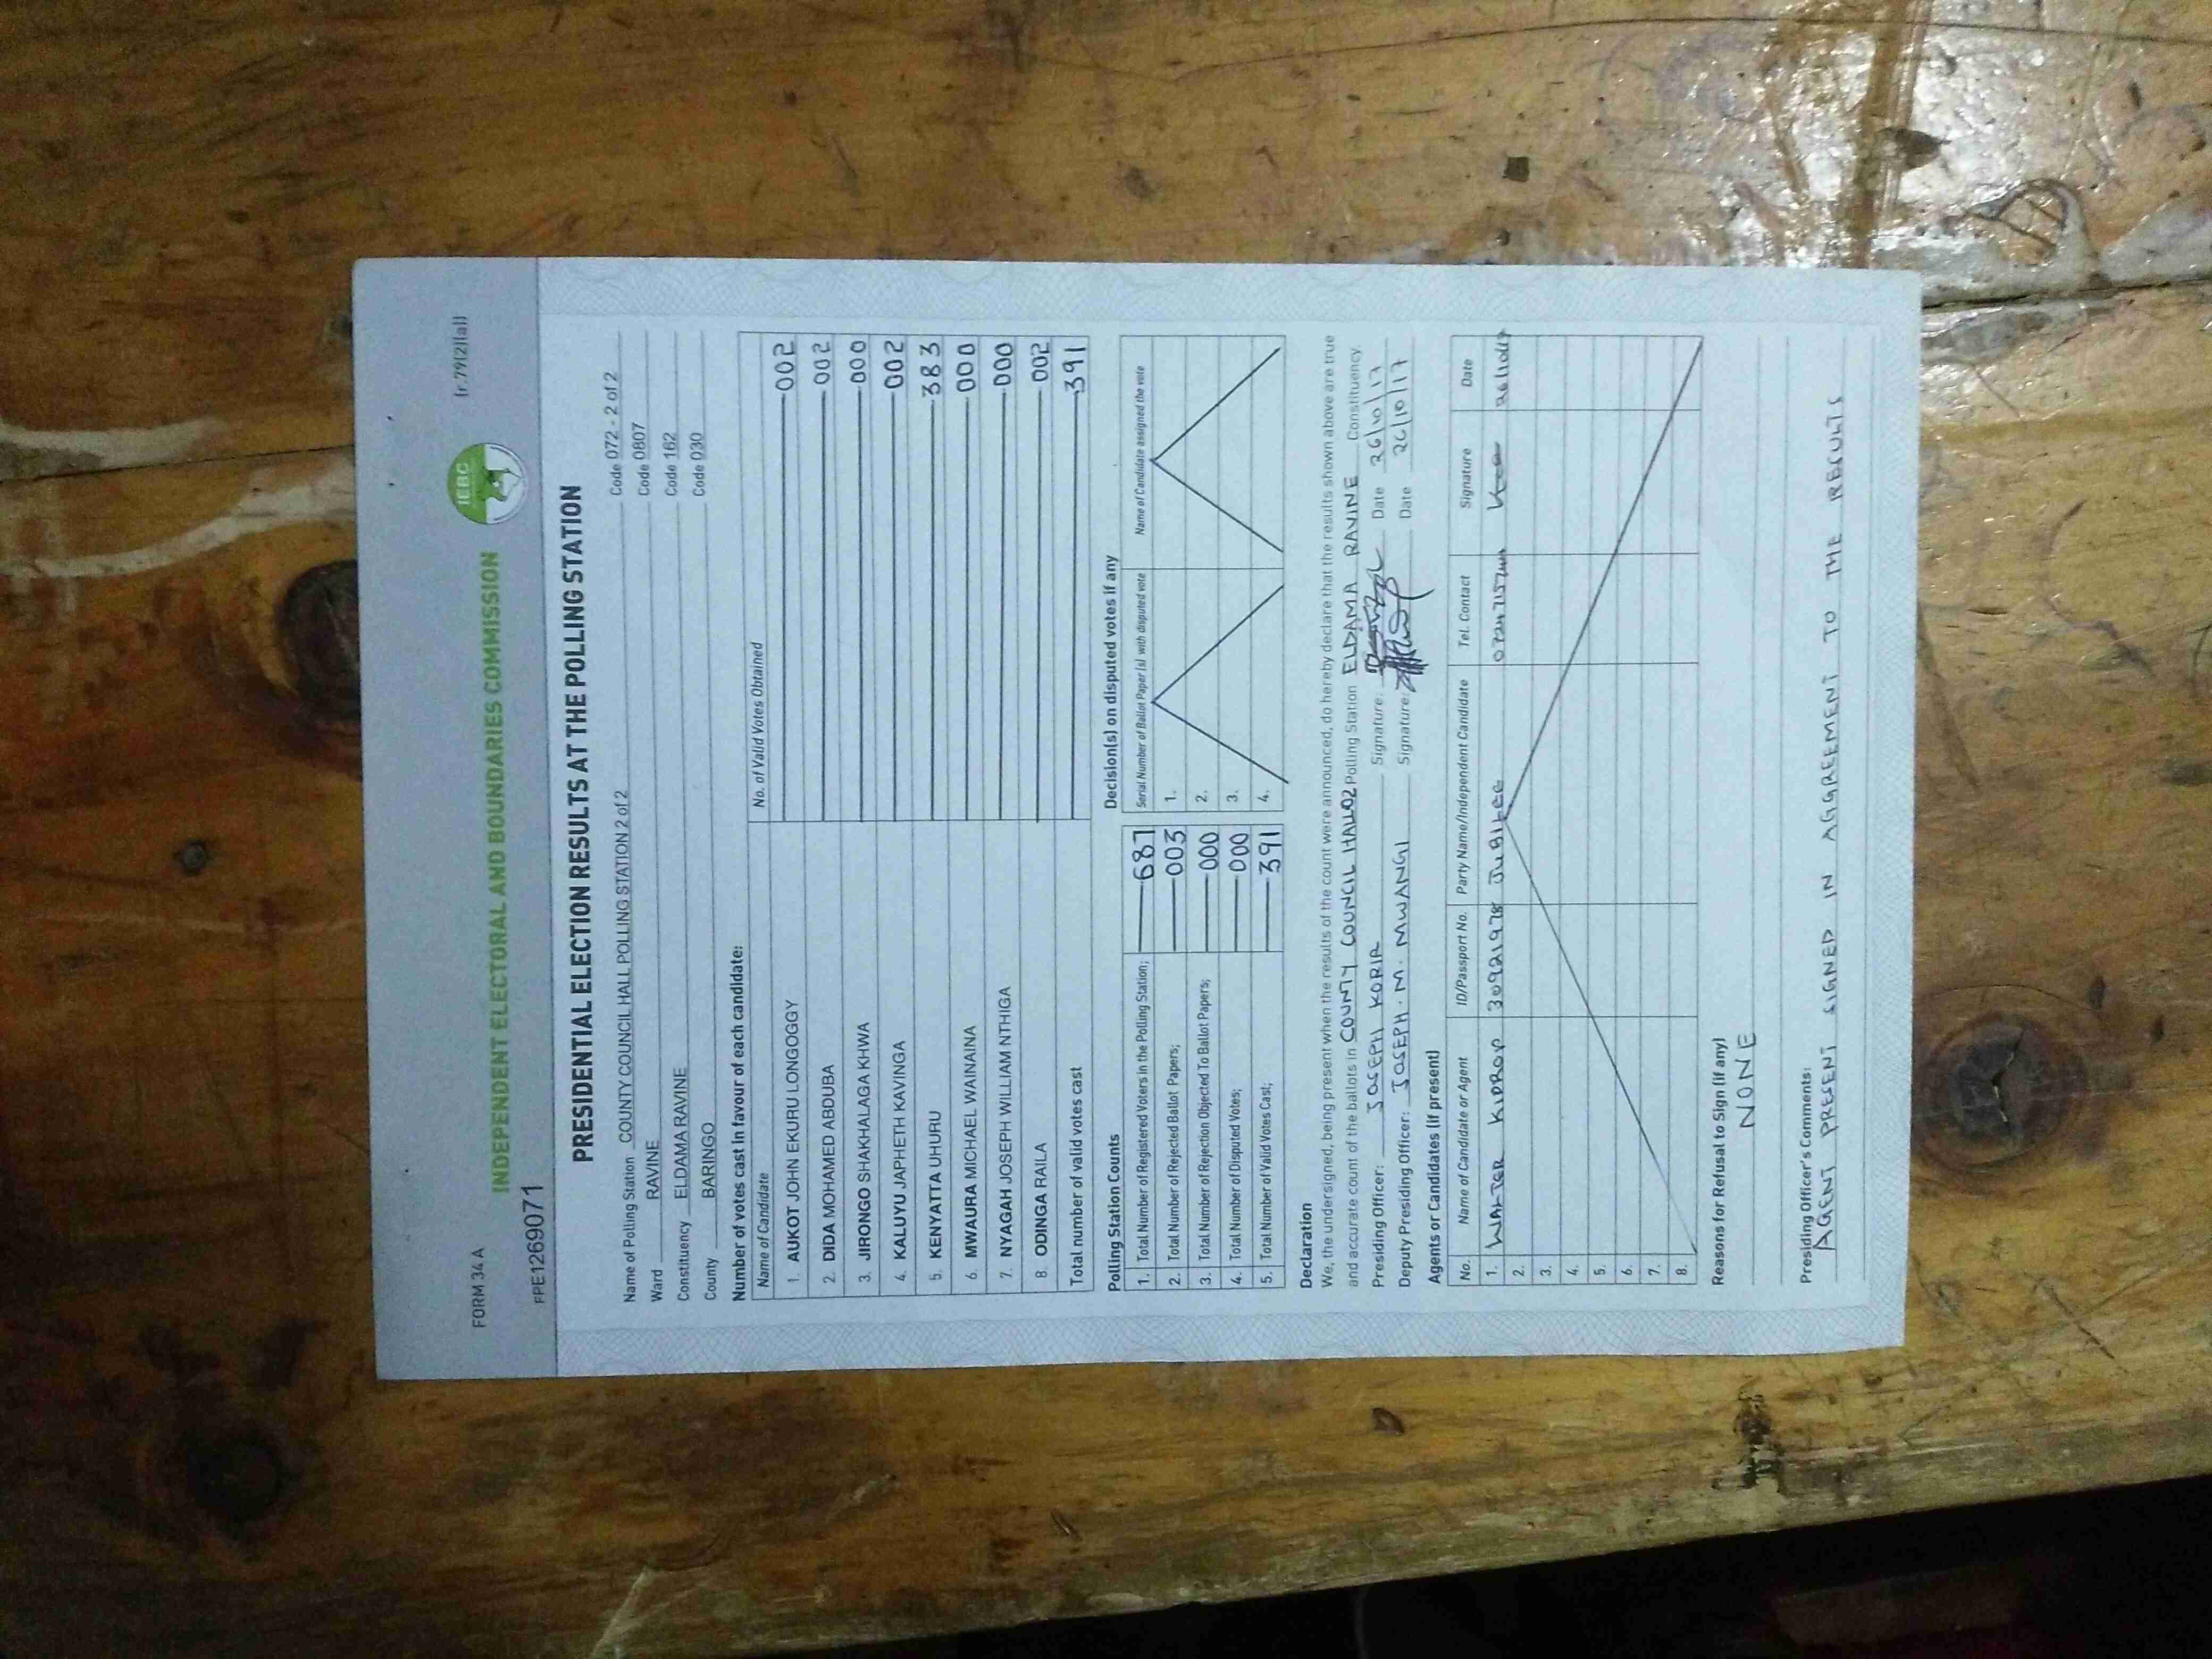 FORM 34 A
(r.79(2)(a))
INDEPENDENT ELECTORAL AND BOUNDARIES COMMISSION
IEBC
FPE1269071
PRESIDENTIAL ELECTION RESULTS AT THE POLLING STATION
Name of Polling Station COUNTY COUNCIL HALL POLLING STATION 2 of 2 Code 072 - 2 of 2
Ward RAVINE Code 0807
Constituency ELDAMA RAVINE Code 162
County BARINGO Code 030
Number of votes cast in favour of each candidate:
Name of Candidate No. of Valid Votes Obtained
1. AUKOT JOHN EKURU LONGOGGY 002
2. DIDA MOHAMED ABDUBA 002
3. JIRONGO SHAKHALAGA KHWA 000
4. KALUYU JAPHETH KAVINGA 002
5. KENYATTA UHURU 383
6. MWAURA MICHAEL WAINAINA 000
7. NYAGAH JOSEPH WILLIAM NTHIGA 000
8. ODINGA RAILA 002
Total number of valid votes cast 391
Polling Station Counts
1. Total Number of Registered Voters in the Polling Station; 687
2. Total Number of Rejected Ballot Papers; 003
3. Total Number of Rejection Objected To Ballot Papers; 000
4. Total Number of Disputed Votes; 000
5. Total Number of Valid Votes Cast; 391
Decision(s) on disputed votes if any
Serial Number of Ballot Paper (s) with disputed vote Name of Candidate assigned the vote
1.
2.
3.
4.
Declaration
We, the undersigned, being present when the results of the count were announced, do hereby declare that the results shown above are true
and accurate count of the ballots in COUNTY COUNCIL HALL 02 Polling Station ELDAMA RAVINE Constituency.
Presiding Officer: JOSEPH KORIR Signature: Date 26/10/17
Deputy Presiding Officer: JOSEPH . M . MWANGI Signature: Date 26/10/17
Agents or Candidates (if present)
No. Name of Candidate or Agent ID/Passport No. Party Name/Independent Candidate Tel. Contact Signature Date
1. WALTER KIPROP 30921978 JUBILEE
2.
3.
4.
5.
6.
7.
8.
Reasons for Refusal to Sign (if any)
NONE
Presiding Officer's Comments:
AGENT PRESENT SIGNED IN AGGREEMENT TO THE RESULTS